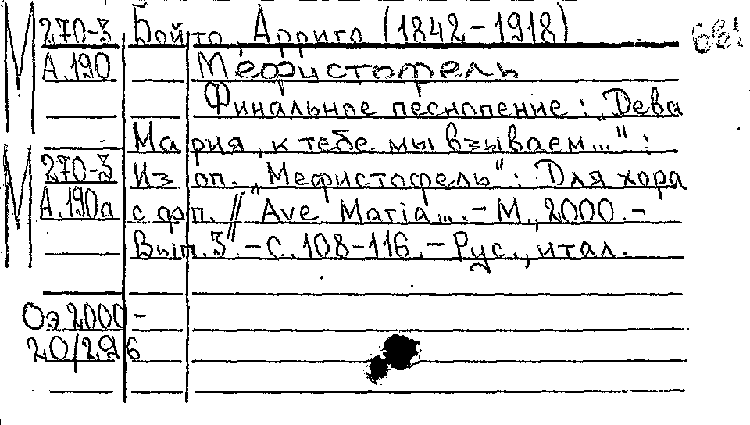 М 270-3 Бойто, Арриго (1842-1918) 681
А.190 Мефистофель
Финальное песнопение: „Дева
Мария, к тебе мы взываем..." :
М 270-3 Из оп. „Мефистофель": Для хора
А.190а с фп. // Ave Maria... - М., 2000. -
Вып. 3. - С. 108-116. - Рус., итал.
Оэ 2000-
20/296